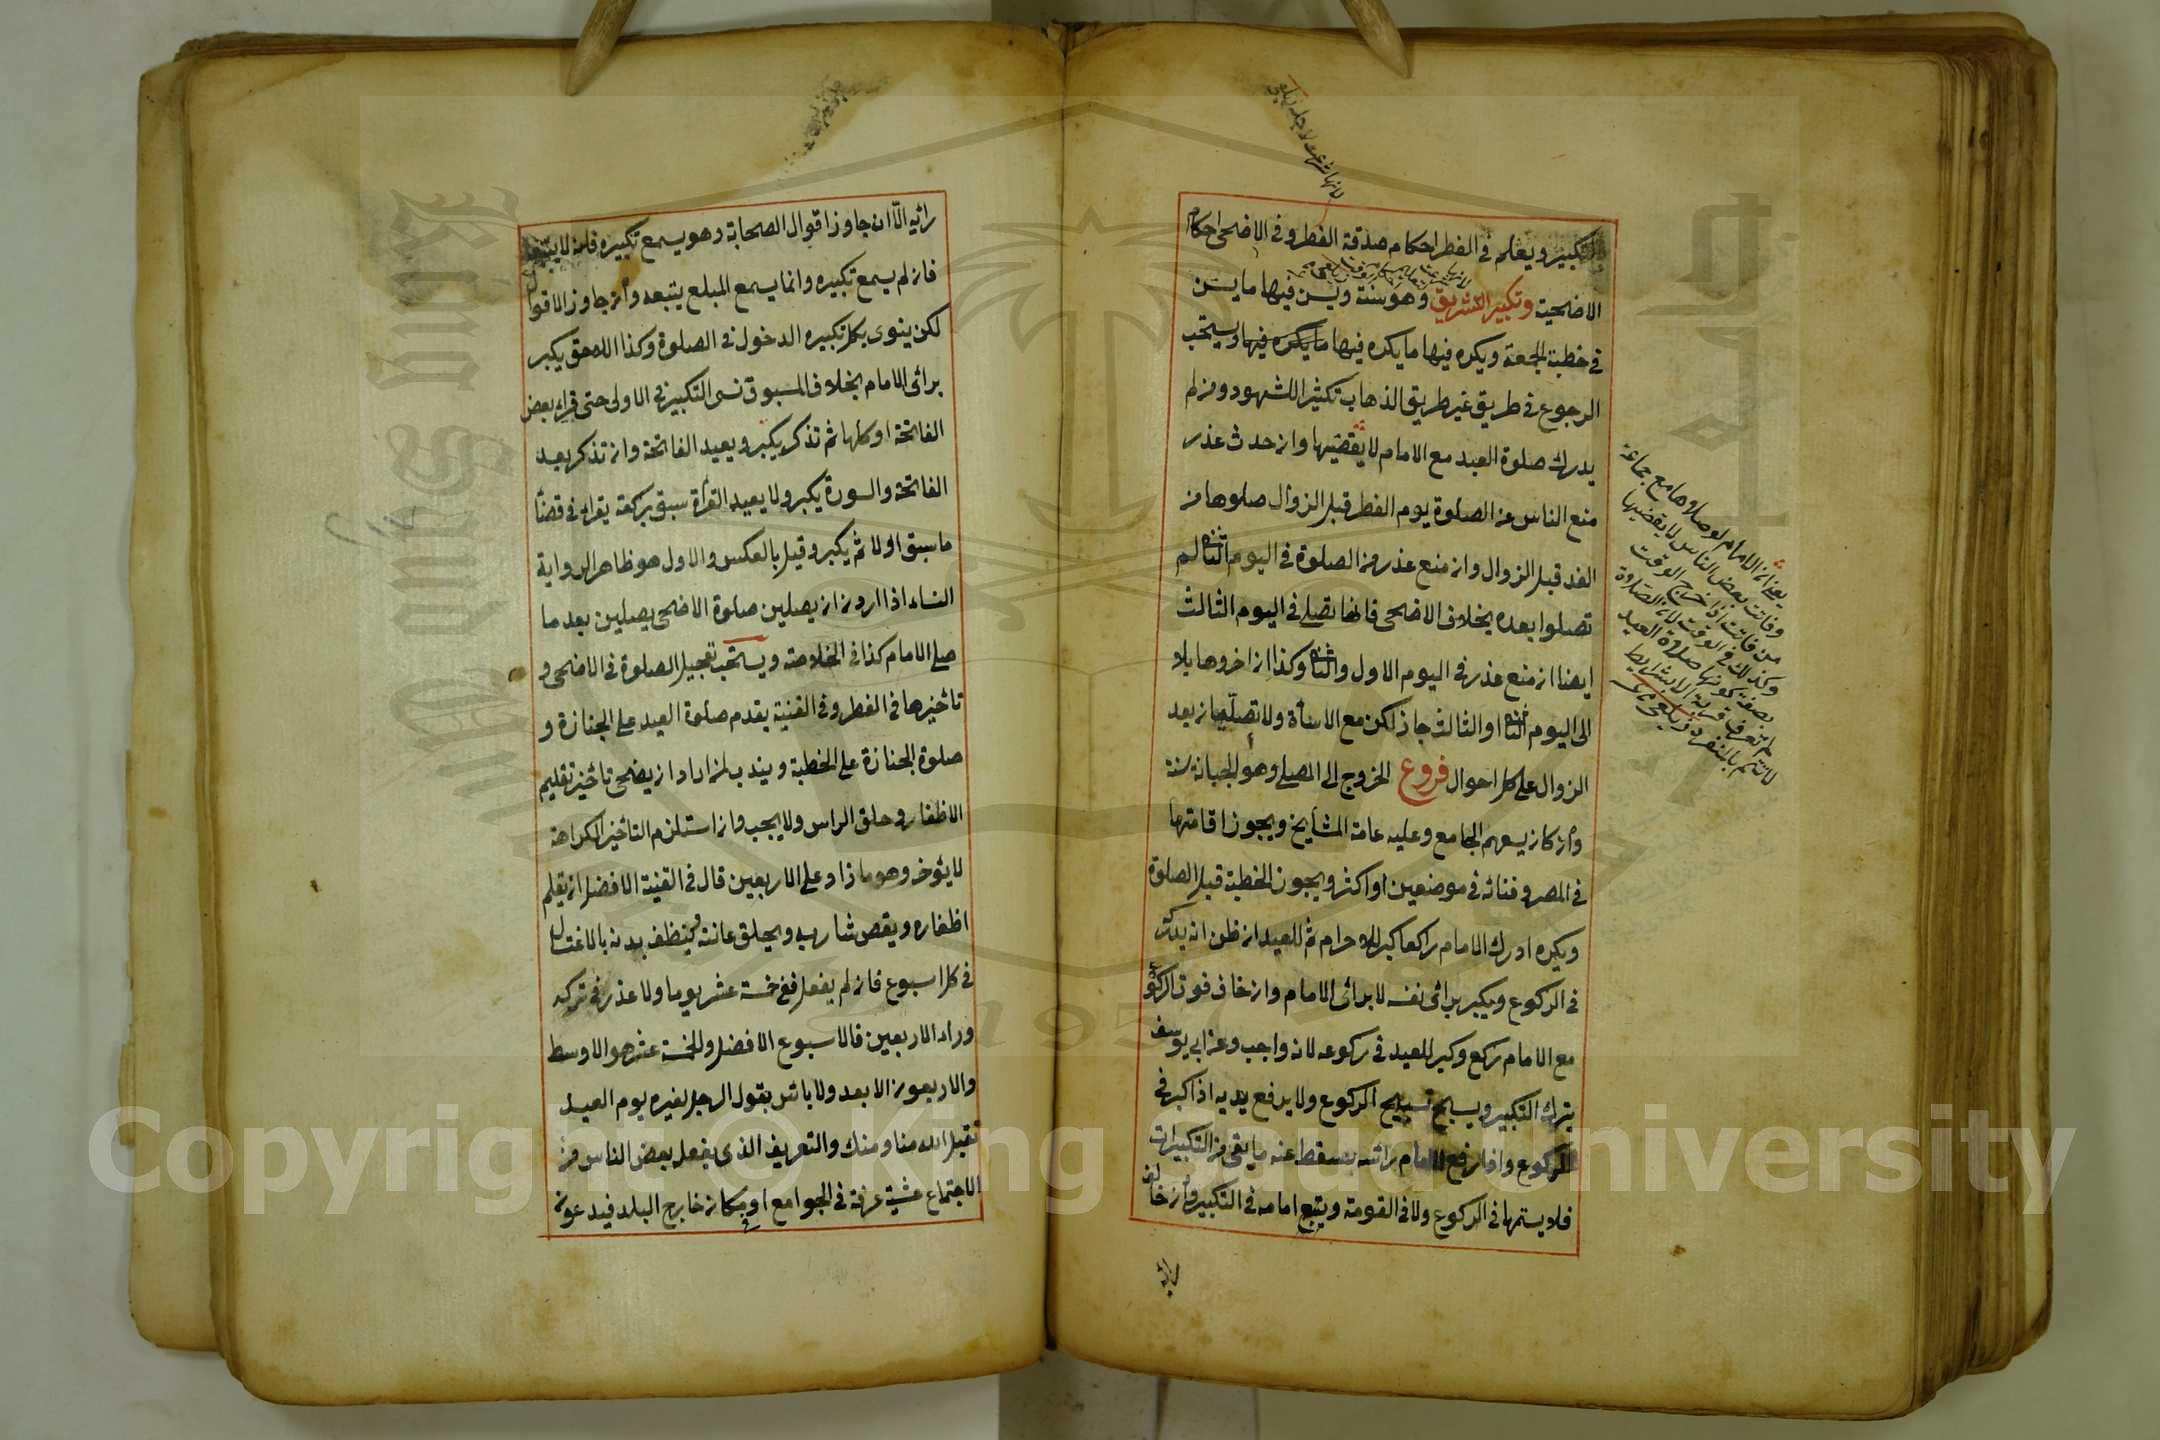 لانها شرعت لاجله زيلعى
التكبير ويعلم فى الفطر احكام صدقة الفطر وفى الاضحى احكام
الاضحية وتكبير التشريق وهو سنة ويسن فيها ما يسن
فى خطبة الجمعة ويكره فيها ما يكره فيها ما يكره فيها ويستحب
الرجوع فى طريق غير طريق الذهاب تكثيرا للشهود ومن لم
يدرك صلوة العيد مع الامام لا يقضيها وان حدث عذر
منع الناس عن الصلوة يوم الفطر قبل الزوال صلوها من
الغد قبل الزوال وان منع عذر من الصلوة فى اليوم الثانى لم
تصلوا بعده بخلاف الاضحى فانها تصلى فى اليوم الثالث
ايضا ان منع عذر فى اليوم الاول والثانى وكذا ان اخروها بلا
الى اليوم الثانى او الثالث جاز لكن مع الاساءة ولا تصلى بعد
الزوال على كل احوال فروع الخروج الى المصلى وهو الجبانة سنة
وان كان يسعهم الجامع وعليه عامة المشايخ ويجوز اقامتها
فى المصر وفنائه فى موضعين او اكثر ويجوز الخطبة قبل الصلوة
ويكره ادرك الامام راكعا كبر للاحرام ثم للعيد ان ظن انه يدركه
فى الركوع ويكبر برائى نفسه لا برائى الامام وان خاف فوت الركوع
مع الامام ركع وكبر للعيد فى ركوعه لانه واجب وعن ابى يوسف
يترك التكبير ويسبح تسبيح الركوع ولا يرفع يديه اذا كبر فى
الركوع واذا رفع الامام رائسه يسقط عنه ما بقى من التكبيرات
فلا يستمها فى الركوع ولا فى القومة ويتبع امامه فى التكبير وان خالف
رائه
يعنى ان الامام لو صلاها مع جماعة
وفاتت بعض الناس لا يقضيها
من فاتت اذا خرج الوقت
وكذلك فى الوقت لان الصلوة
بصفة كونها صلوة العيد
لم تعرف قربة الا بشرايط
لا تتم بالمنفرد زيلعى
رائيه الا ان جاوز اقوال الصحابة وهو يسمع تكبيره فانه لا يتبعه
فان لم يسمع تكبيره وانما يسمع المبلغ يتبعه وان جاوز الاقوال
لكن ينوى بكل تكبيره الدخول فى الصلوة وكذا اللاحق يكبر
برائى الامام بخلاف المسبوق نسى التكبير فى الاولى حتى قراء بعض
الفاتحة او كلها ثم تذكر يكبر ويعيد الفاتحة وان تذكر بعد
الفاتحة والسورة يكبر ولا يعيد القراة سبق بركعة يقراء فى قضاء
ما سبق اولا ثم يكبر وقيل بالعكس والاول هو ظاهر الرواية
النساء اذا اردن ان يصلين صلوة الاضحى يصلين بعد ما
صلى الامام كذا فى الخلاصة ويستحب تعجيل الصلوة فى الاضحى و
تاخيرها فى الفطر وفى القنية يقدم صلوة العيد على الجنازة و
صلوة الجنازة على الخطبة ويندب لمن اراد ان يضحى تاخير تقليم
الاظفار وحلق الراس ولا يجب وان استلزم التاخير الكراهة
لا يؤخر وهو ما زاد على الاربعين قال فى القنية الافضل ان يقلم
اظفاره ويقص شاربه ويحلق عانته وينظف بدنه بالاغتسال
فى كل اسبوع فان لم يفعل ففى خمسة عشر يوما ولا عذر فى تركه
وراء الاربعين فالاسبوع الافضل والخمسة عشر هو الاوسط
والاربعون الابعد ولا باس بقول الرجل لغيره يوم العيد
تقبل الله منا ومنك والتعريف الذى يفعله بعض الناس من
الاجتماع عشية عرفة فى الجوامع او مكان خارج البلد فيدعون
Copyright © King Saud University
1957